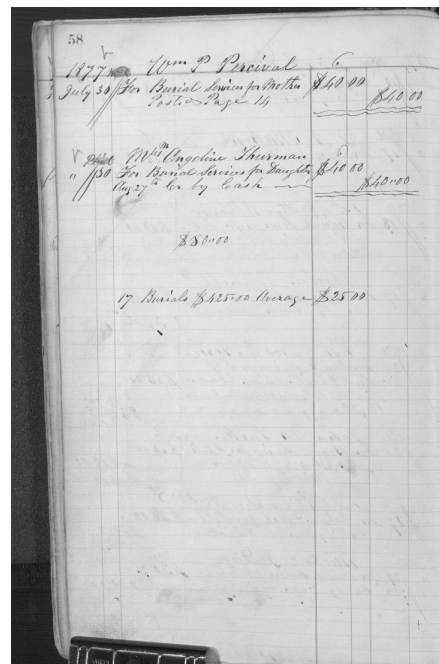 58
1877 Wm P Percival 6
July 30 For Burial Services for Mother $40 00
Posted Page 14 $40 00
Mrs Angeline Thurman 6
" 30 For Burial Services for Daughter $40 00
Aug 27th Cr by Cash $40.00
$80.00
17 Burials $425.00 Average $25 00